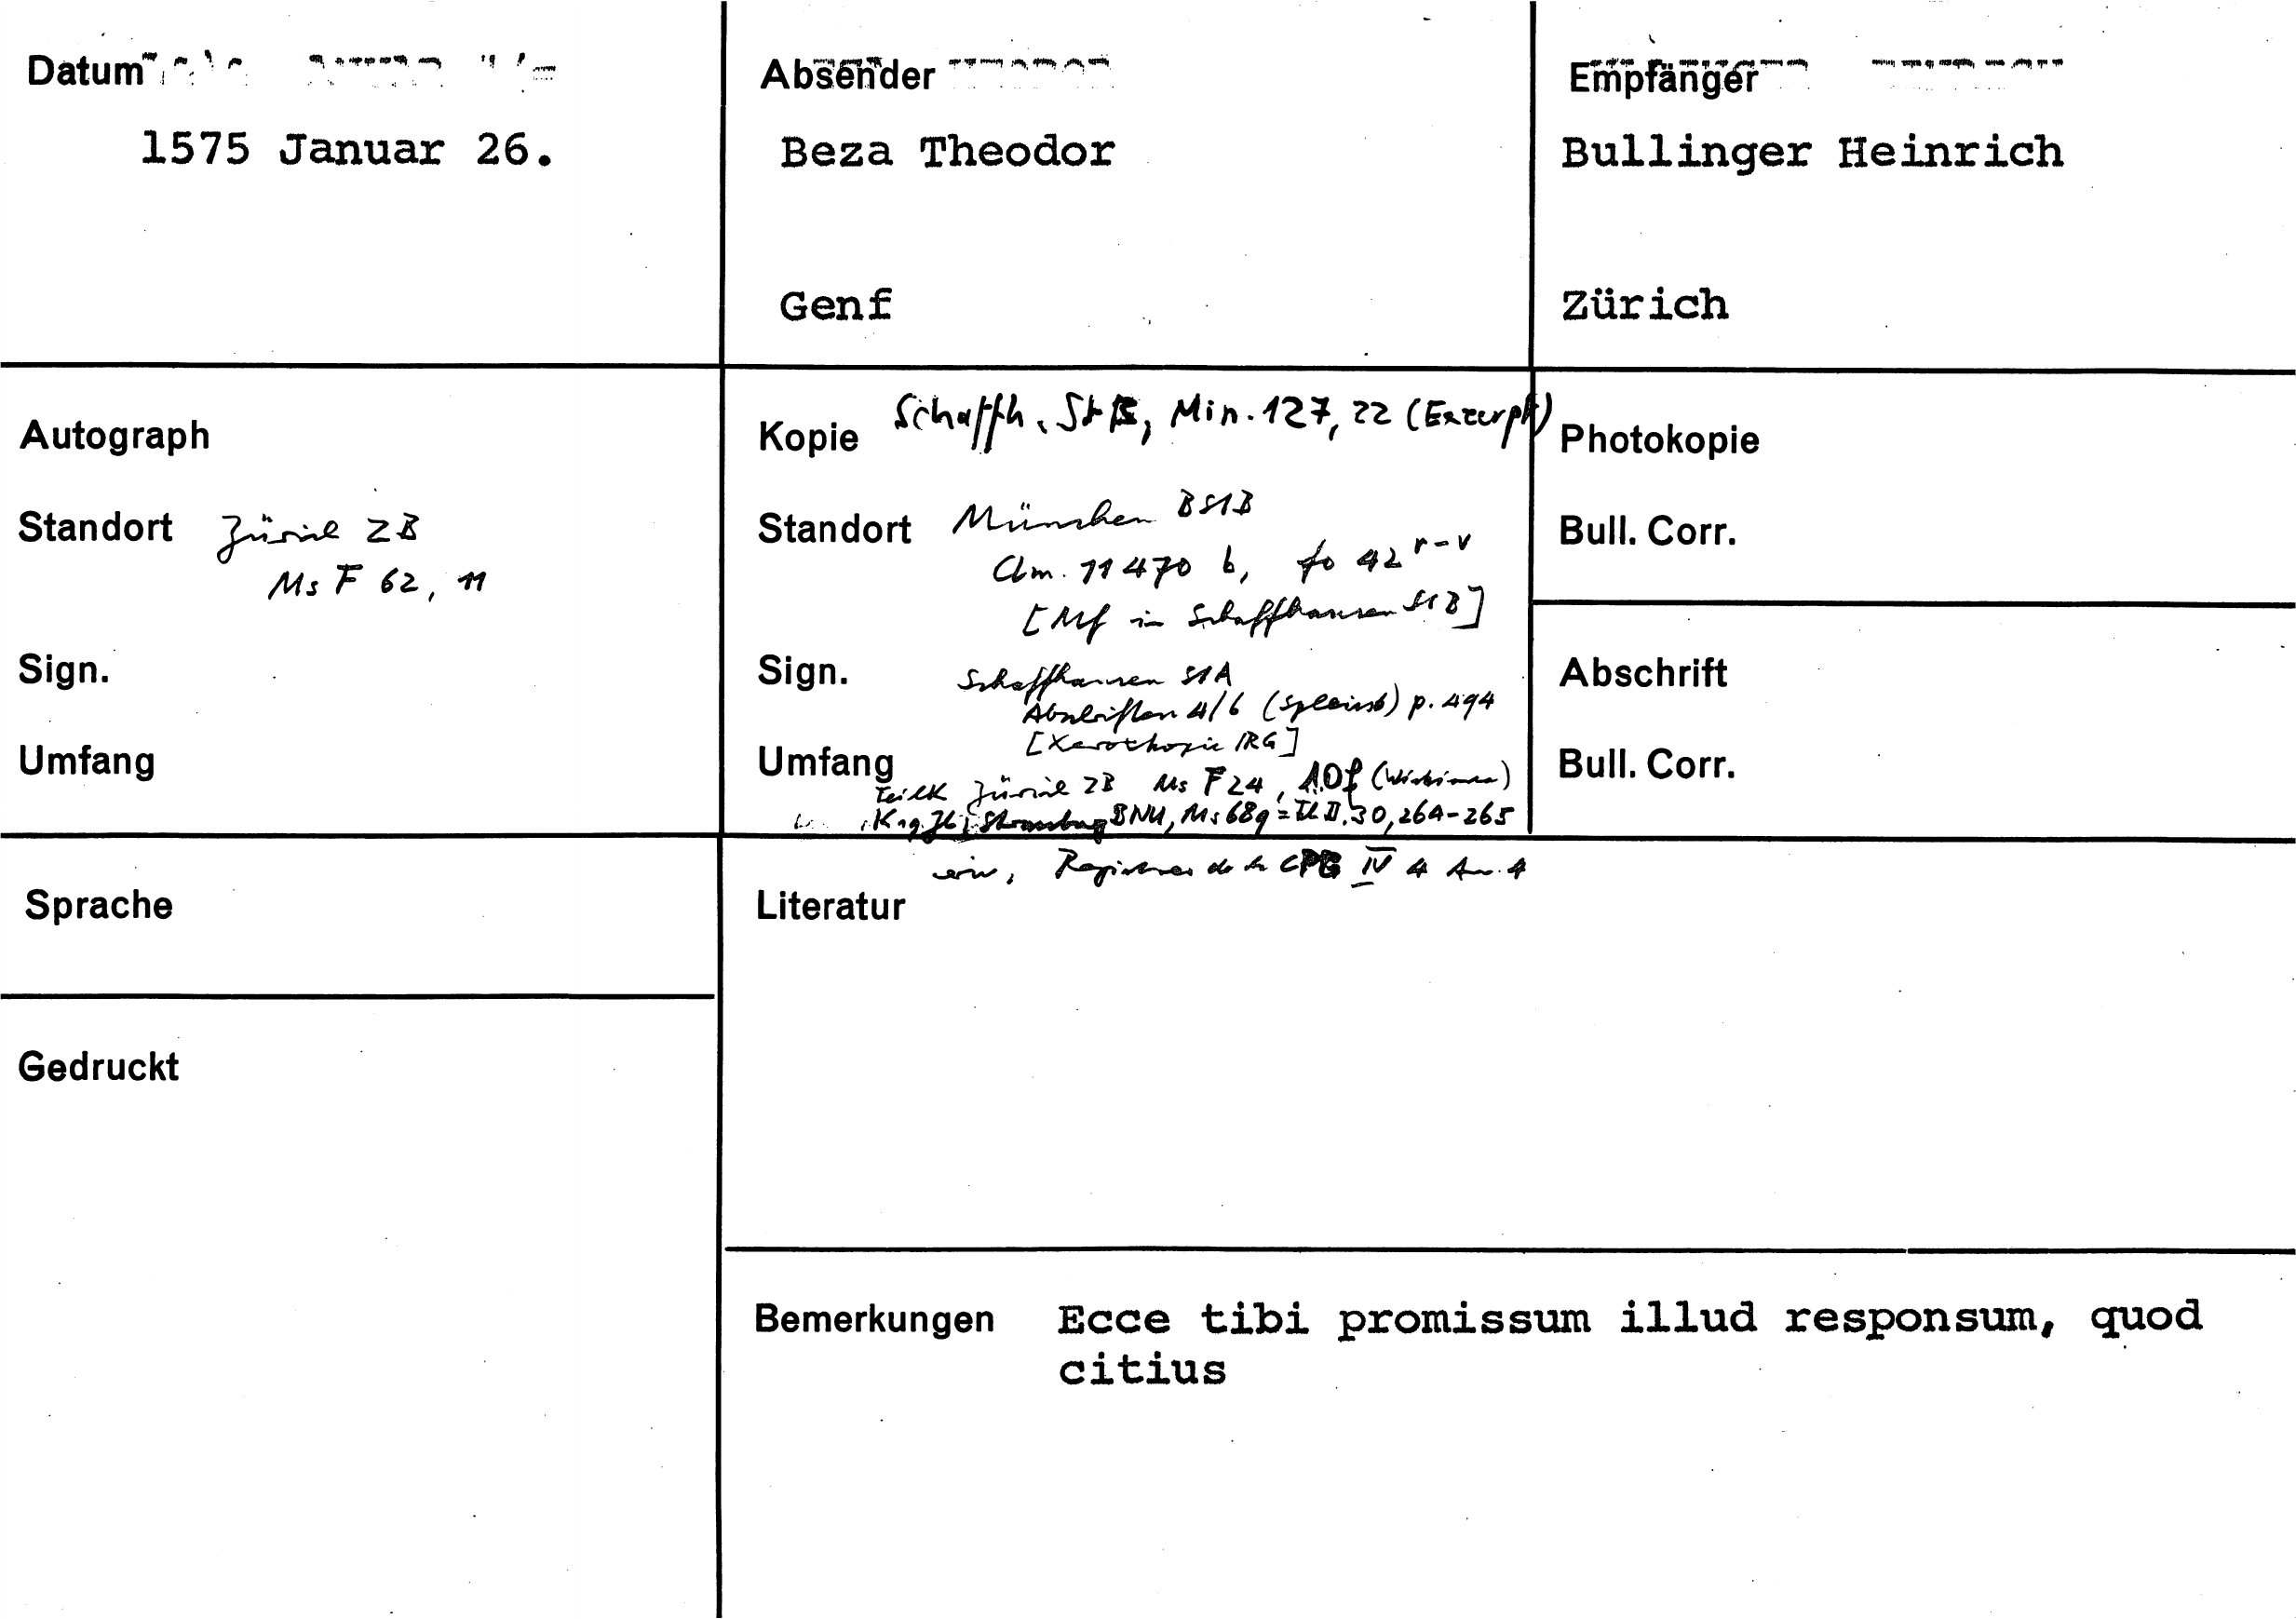 Datum
1575 Januar 26.
Absender
Beza Theodor
Genf
Empfänger
Bullinger Heinrich
Zürich
Autograph
Standort Zürich ZB
Ms F 62, 11
Sign.
Umfang
Kopie Schaffh. StB, Min. 127, 22 (Exzerpt)
Standort München BStB
Clm. 11470 b, fo 42 r-v
[Mf in Schaffhausen StB]
Sign. Schaffhausen StA
Abschriften 4/6 p. 494
[Xerokopie IRG]
Umfang
TeilK Zürich ZB Ms F 24,
K 19. Jh; Strassburg BNU, Ms 689 = II, 30, 264-265
Registres de la CPG IV
Photokopie
Bull. Corr.
Abschrift
Bull. Corr.
Sprache
Gedruckt
Literatur
Bemerkungen Ecce tibi promissum illud responsum, quod
citius